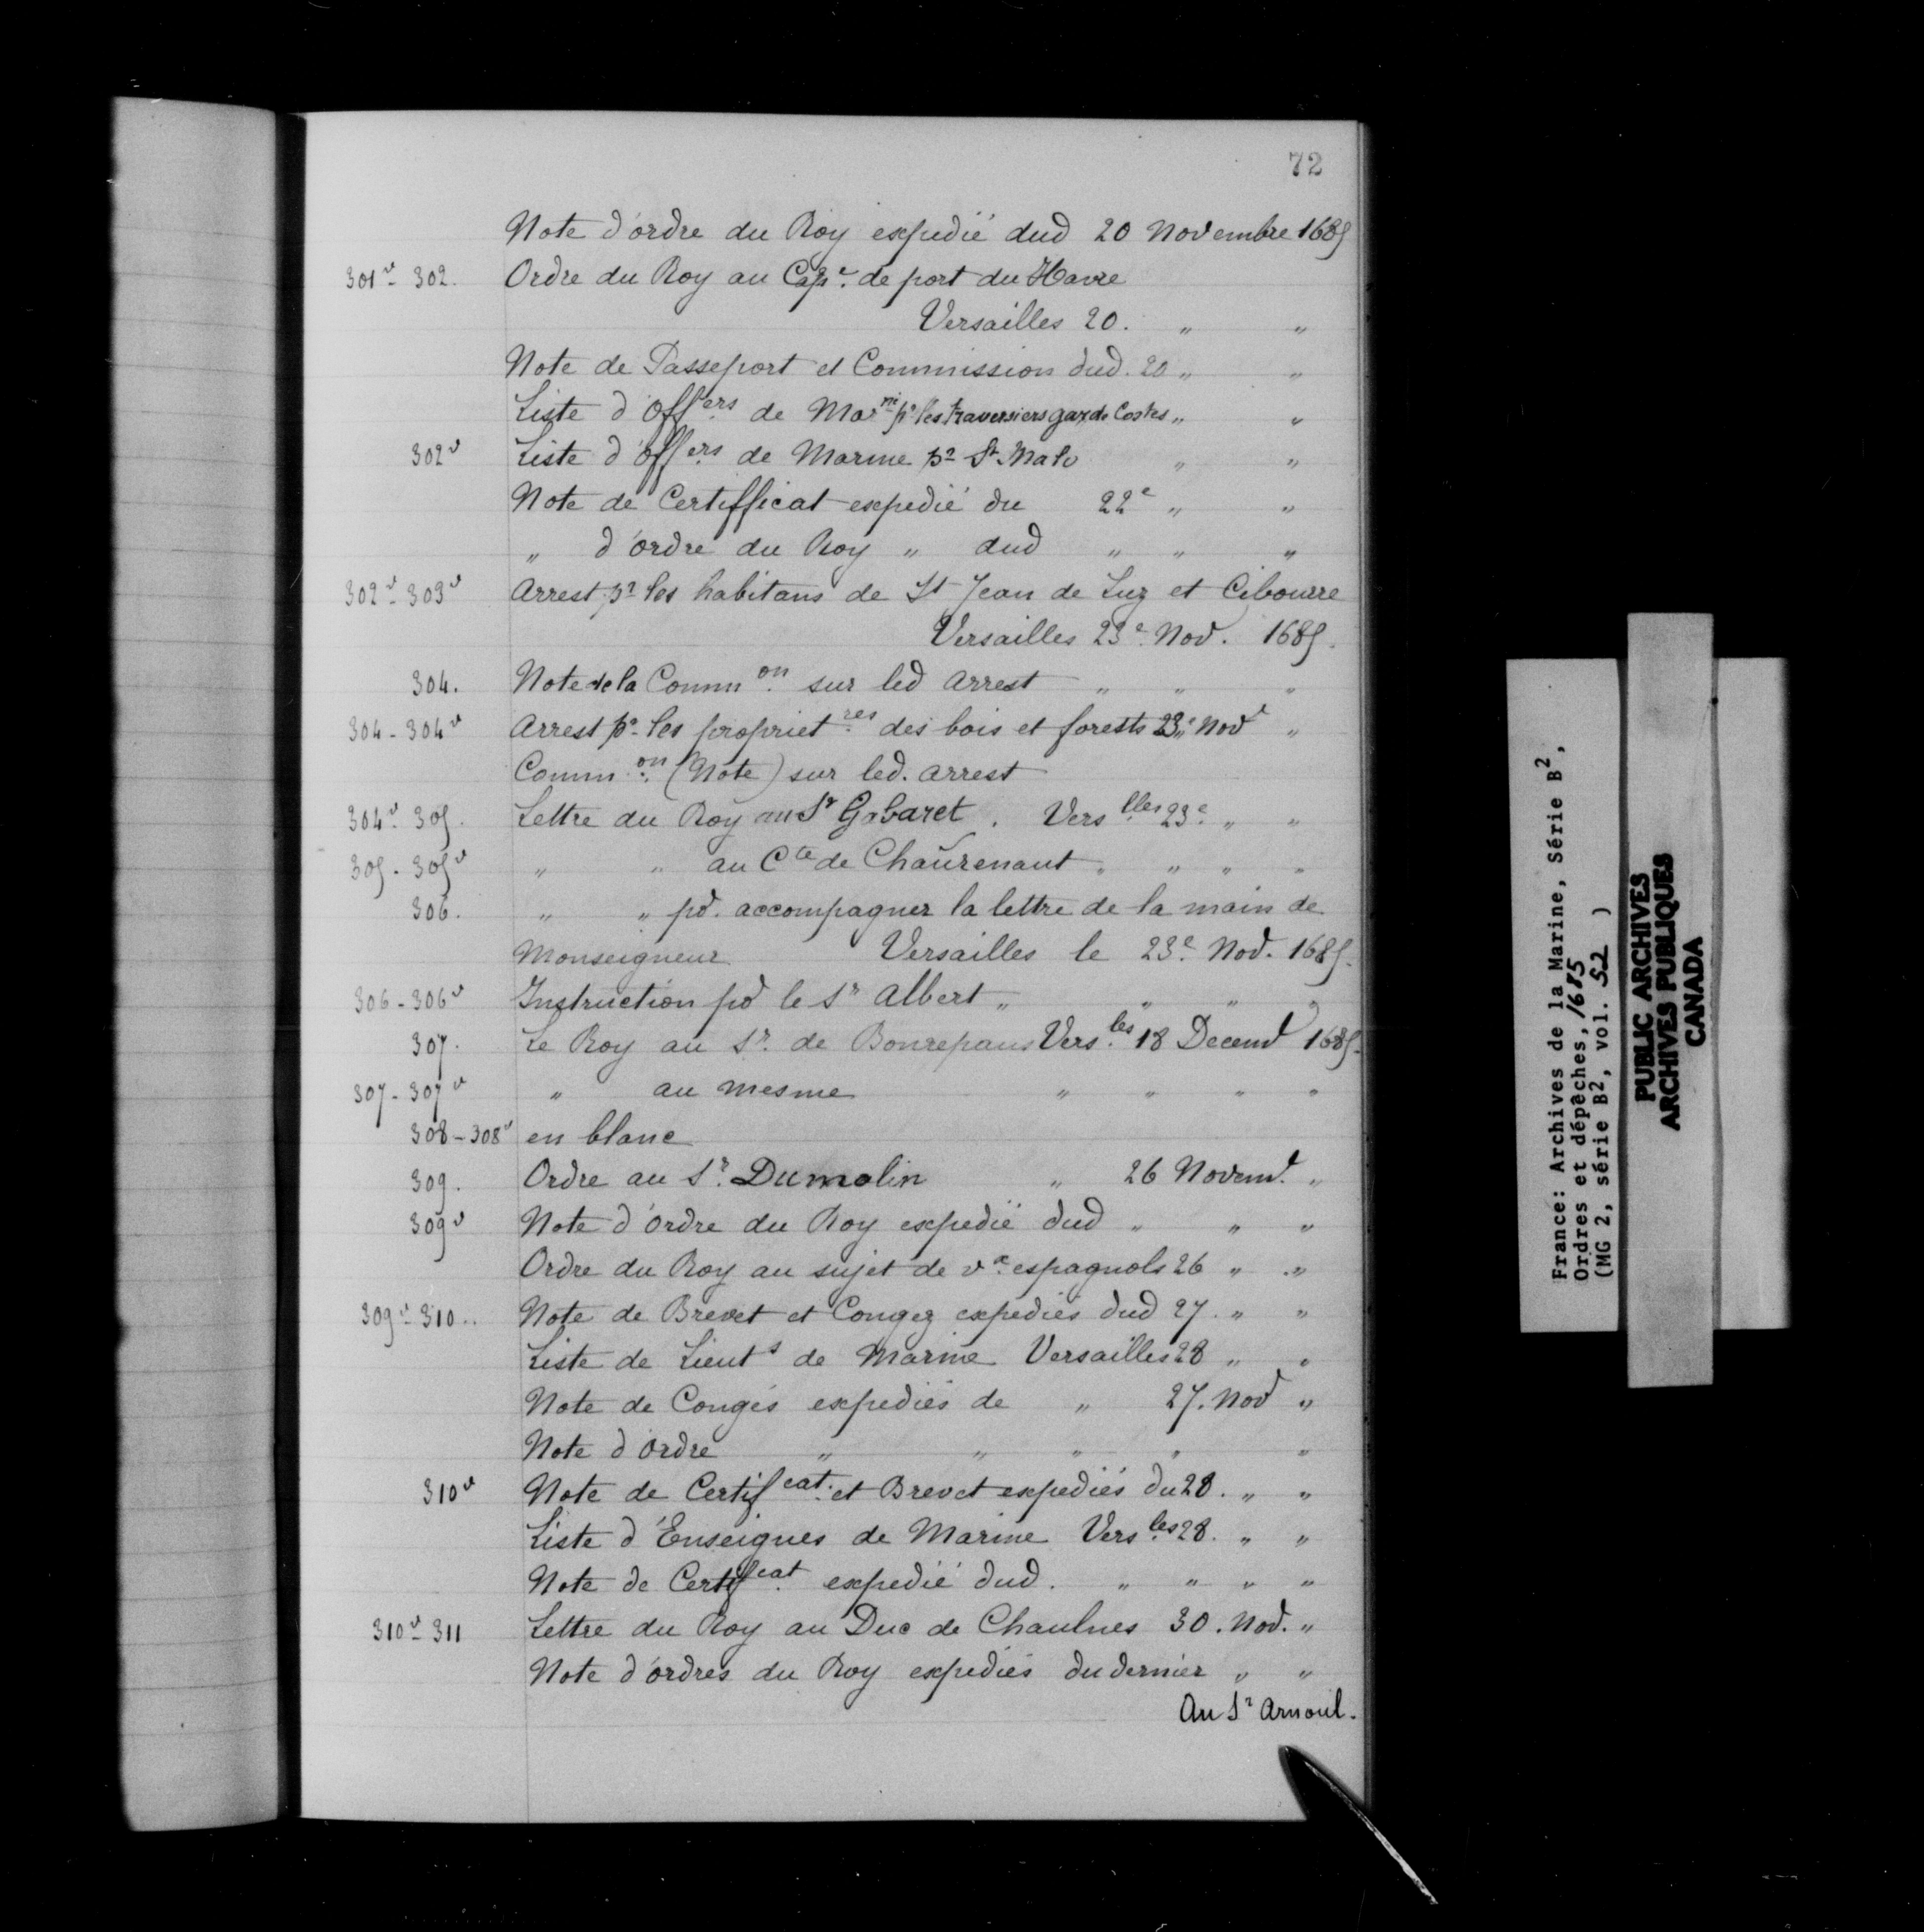 72
Note d'ordre du Roy expedié dud 20 Novembre 1685
301v - 302. Ordre du Roy au Cape. de port du Havre
Versailles 20. „ „
Note de Passeport et Commission dud. 20 „ „
Liste d'offers de Marne pr les traversiers garde Costes „ „
302v Liste d'offers de Marine pr St Malo „ „
Note de Certifficat expedié du 22e „ „
„ d'ordre du Roy „ dud „ „ „
302v - 303v Arrest pr les habitans de St Jean de Luz et Cibourre
Versailles 23e. Nov. 1685.
304. Note de la Common. sur led Arrest „ „ „
304 - 304v Arrest pr les proprietres des bois et forests 23e Nove „
Common. (Note) sur led. arrest
304v - 305. Lettre du Roy au Sr Gabaret. Verslles 23e. „ „
305 - 305v „ „ au Cte de Chaurenaut „ „ „ „
306. „ „ pd. accompagner la lettre de la main de
Monseigneur Versailles le 23e. Nov. 1685.
306 - 306v Instruction pd le Sr Albert „ „ „ „
307. Le Roy au Sr. de Bonrepaus Versles. 18 Decemb 1685.
307 - 307v „ au mesme „ „ „ „
308 - 308v en blanc
309. Ordre au Sr. Dumolin „ 26 Novemb. „
309v Note d'ordre du Roy expedié dud „ „ „
Ordre du Roy au sujet de vx. espagnols 26 „ „
309v - 310.. Note de Brevet et Congez expediés dud 27. „ „
Liste de Lieuts de Marine Versailles 28 „ „
Note de Congés expediés de „ 27. Nov „
Note d'ordre „ „ „ „ „
310v Note de Certifcat. et Brevet expediés du 28. „ „
Liste d'Enseignes de Marine Versles. 28. „ „
Note de Certifcat. expedié dud. „ „ „ „
310v - 311 Lettre du Roy au Duc de Chaulnes 30. Nov. „
Note d'ordres du Roy expediés du dernier „ „
Au Sr Arnoul.
France: Archives de la Marine, Série B2,
Ordres et dépêches, 1685
(MG 2, série B2, vol. 52 )
PUBLIC ARCHIVES
ARCHIVES PUBLIQUES
CANADA